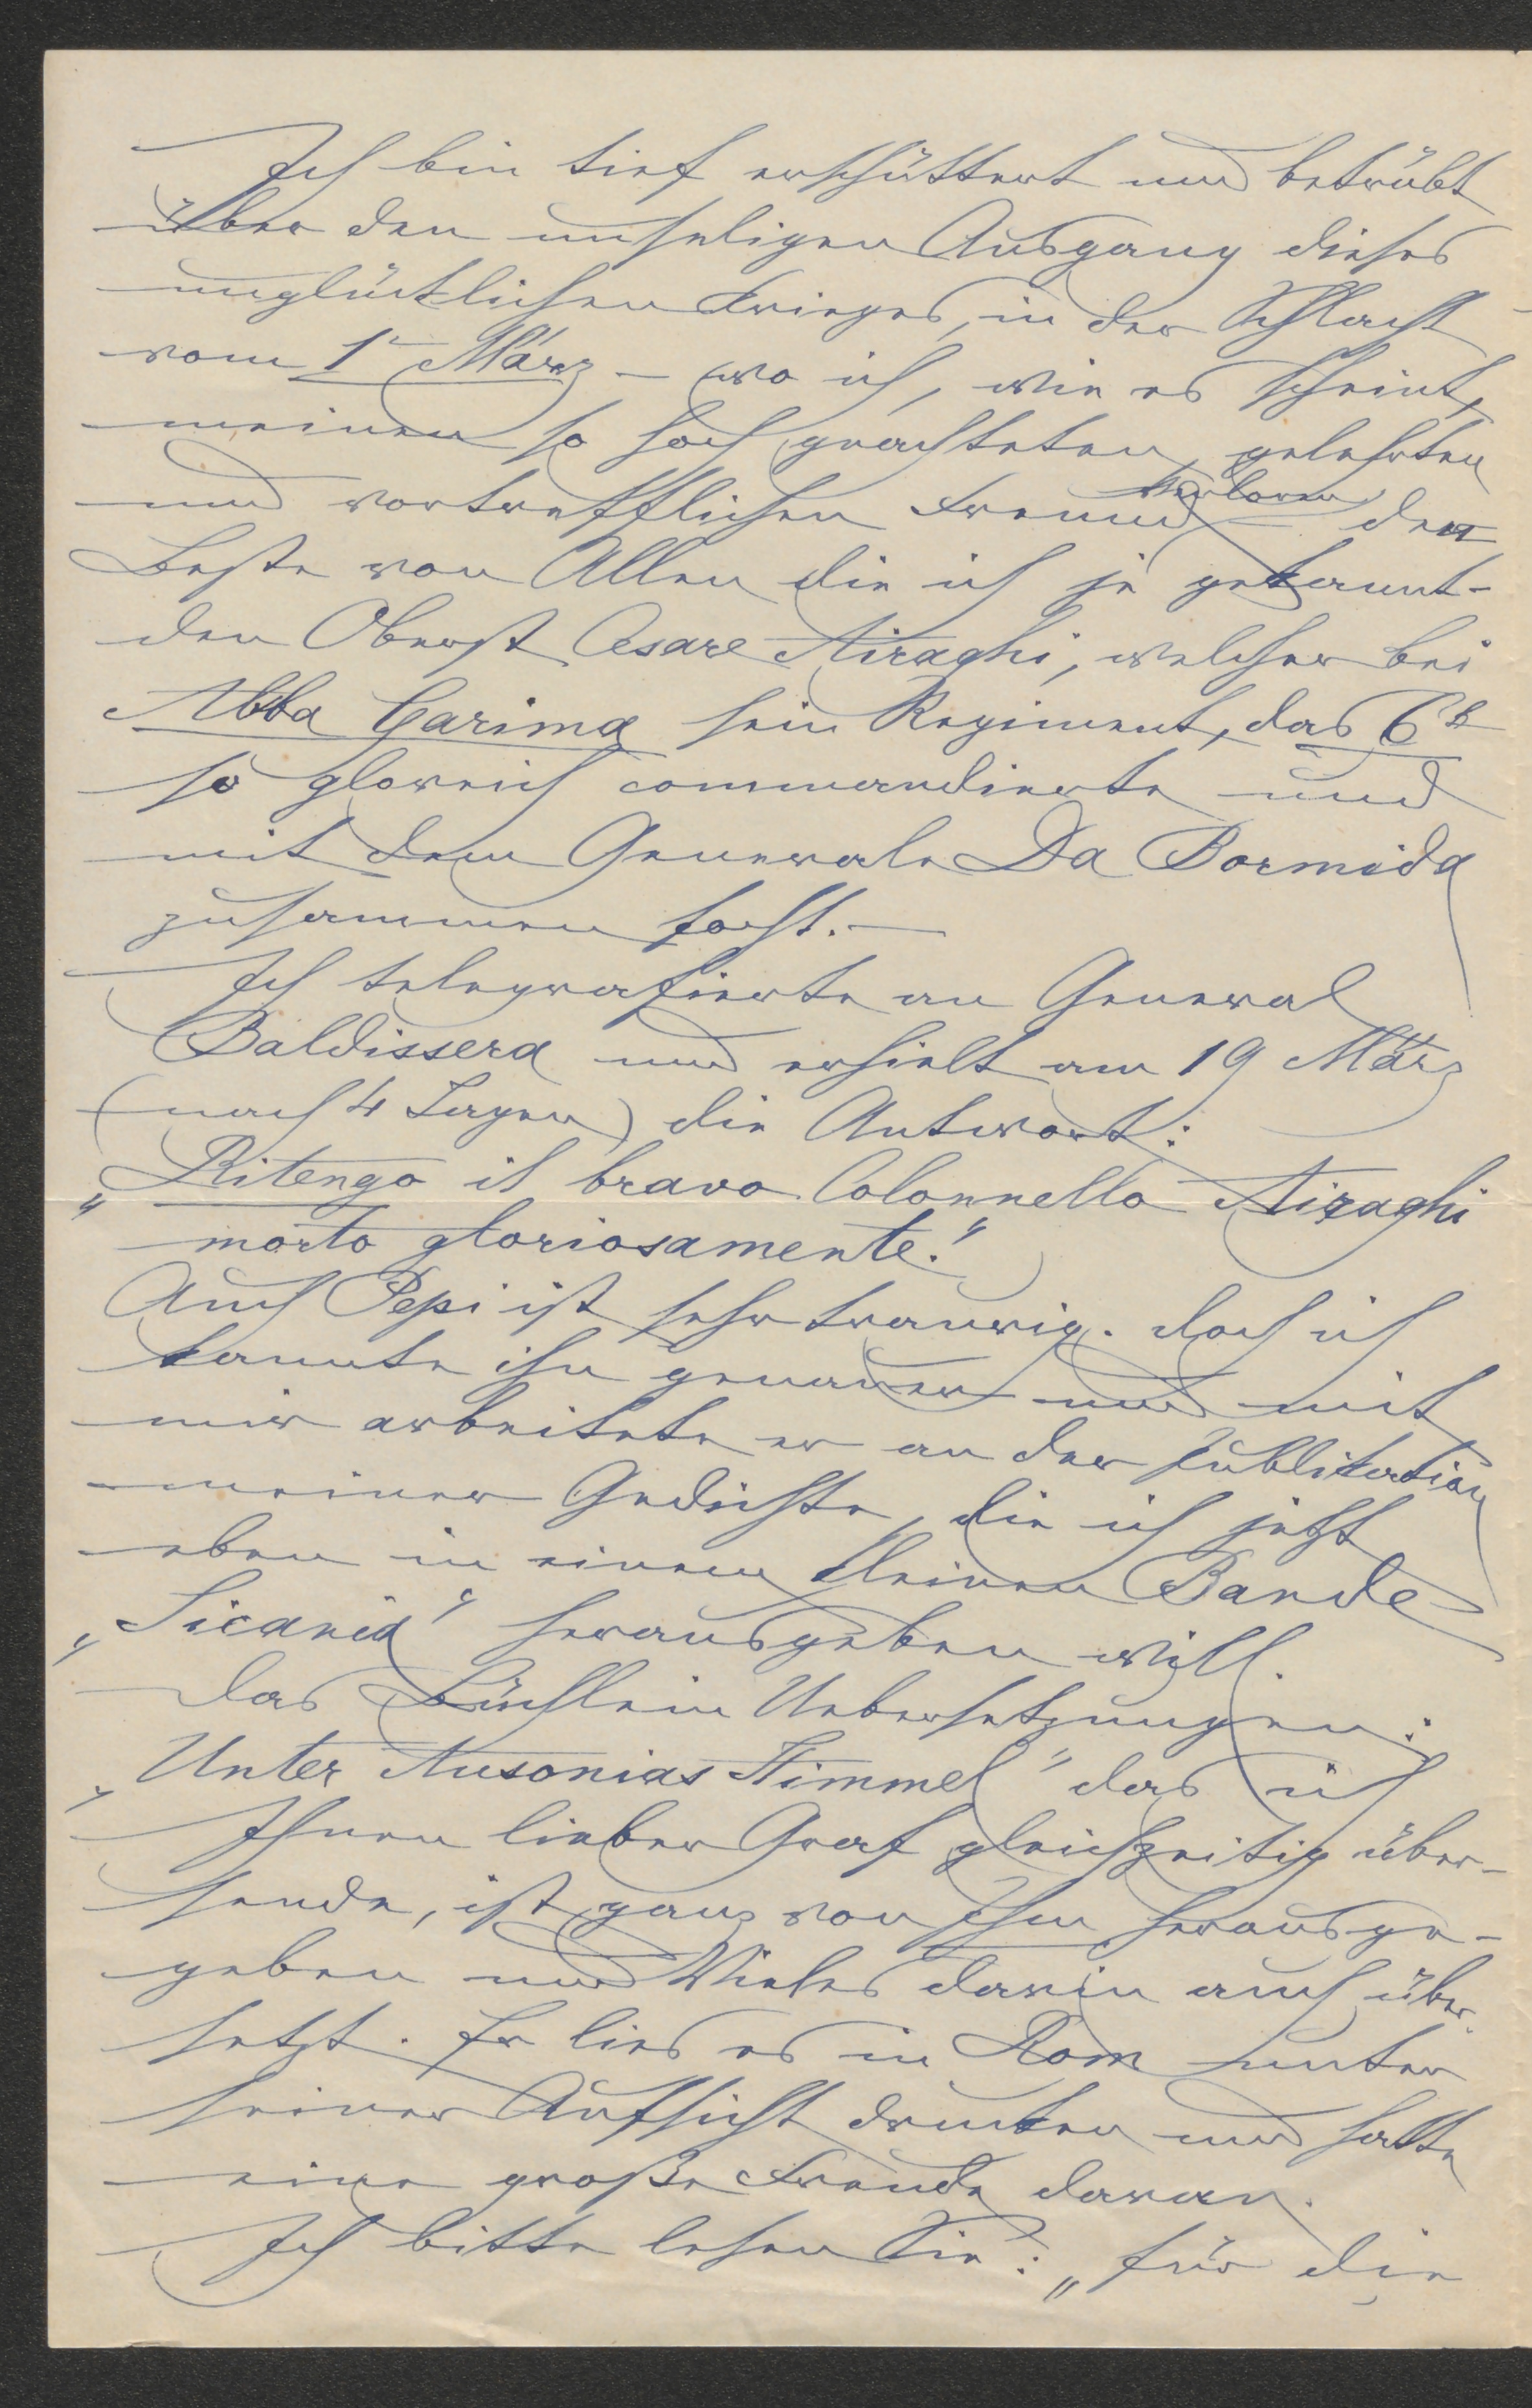 Ich bin tief erschüttert und betrübt
über den unseligen Ausgang dieses
unglücklichen Krieges, in der Schlacht
vom 1r März – wo ich, wie es scheint,
meinen so hoch geachteten, gelehrten
und vortrefflichen Freund verloren den
Beste von Allen die ich je gekannt –
den Oberst Cesare Airaghi, welcher bei
Abba Garima sein Regiment, das 6te
so glorreich commandierte und
mit dem Generale Da Bormida
zusammen focht. –
Ich telegrafierte an General
Baldissera und erhielt am 19 März
(nach 4 Tagen) die Antwort:
„Ritengo il bravo Colonnello Airaghi
morto gloriosamente."
Auch Pepi ist sehr traurig. doch ich
kannte ihn genauer und mit
mir arbeitete er an der Publikation
meiner Gedichte, die ich jetzt
eben in einem kleinen Bande
„Sicania" herausgeben will.
Das Büchlein Uebersetzungen:
„Unter Ausonias Himmel" das ich
Ihnen lieber Graf gleichzeitig über-
sende, ist ganz von Ihm herausge-
geben und Vieles darin auch über
setzt. Er lies es in Rom unter
seiner Aufsicht drucken und hatte
eine große Freude daran.
Ich bitte lesen Sie: „für die